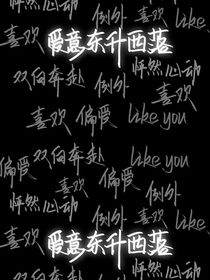 倒外 Like
喜欢 喜欢
爱意东升西落
双向奔赴 怦然心动
倒外
喜欢
喜欢 偏爱 Like you
偏爱 双向奔赴 Like you
喜欢 偏爱 倒外
怦然心动 喜欢
倒外 Like
喜欢
爱意东升西落